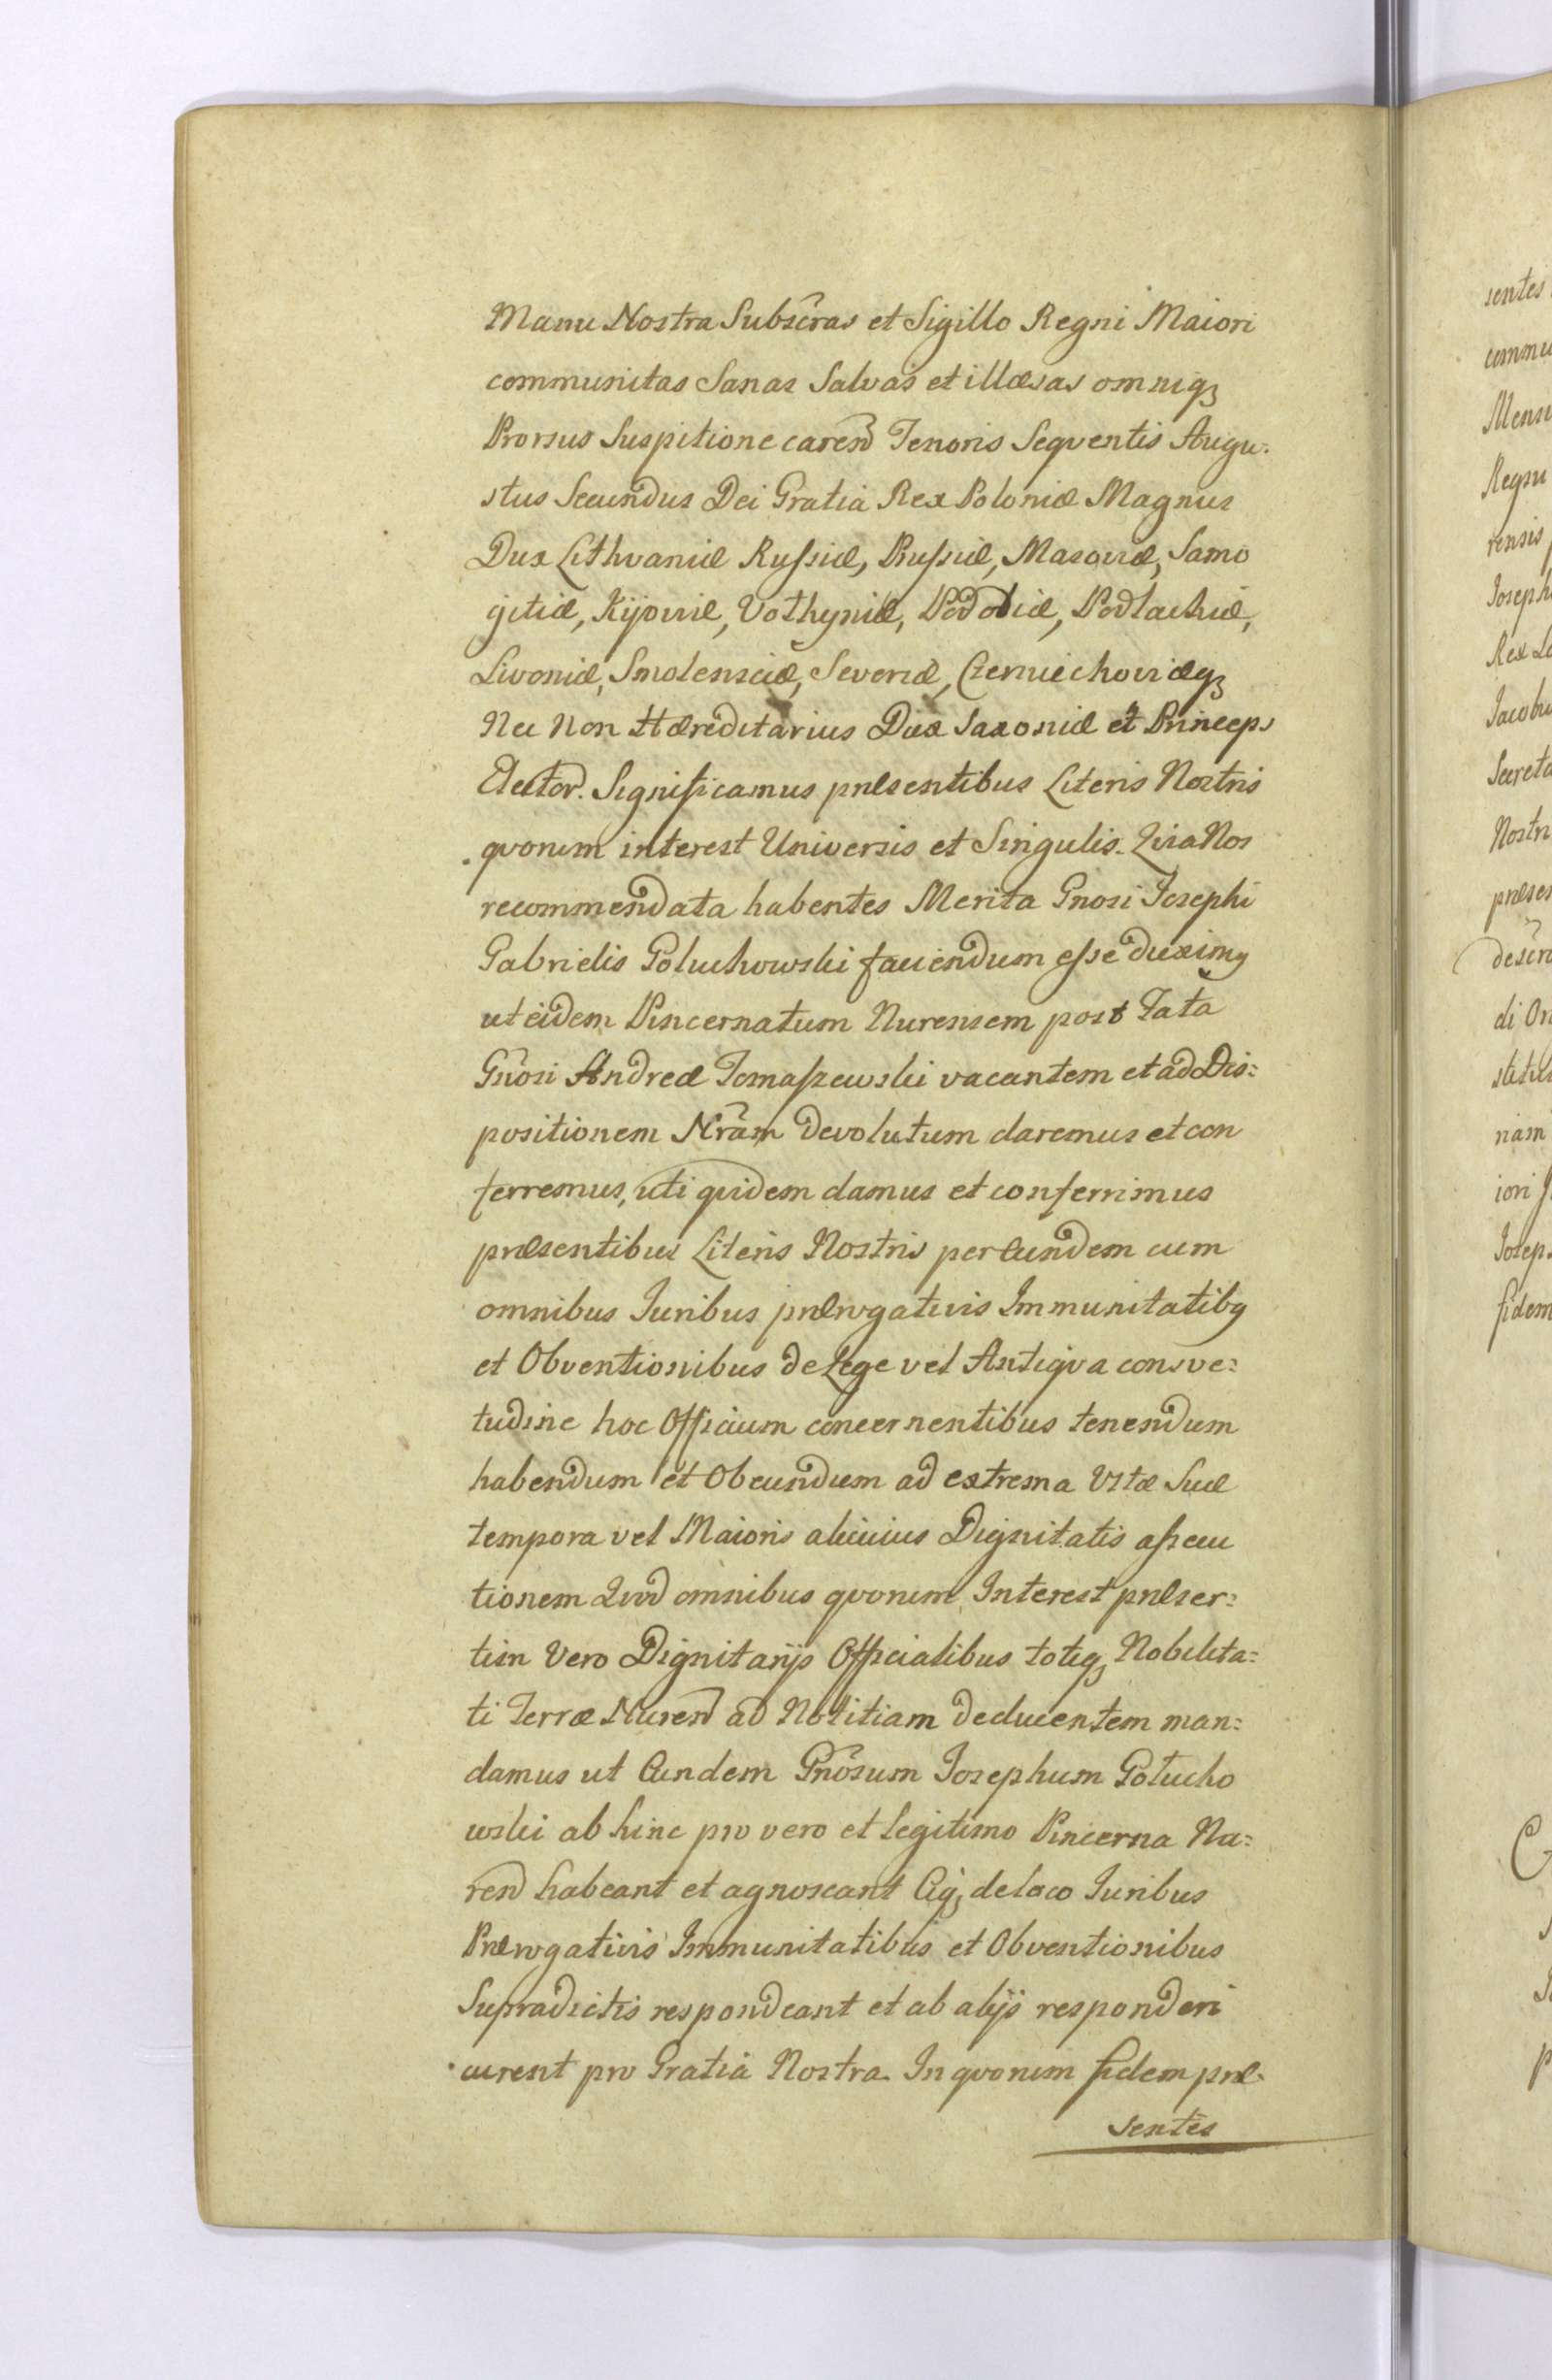 Manu Nostra Subscras et Sigillo Regni Maiori
communitas Sanas Salvas et illæsas omniq3
Prorsus Suspitione caren Tenoris Seqventis Augu:
stus Secundus Dei Gratia Rex Poloniæ Magnus
Dux Lithvaniæ Russiæ, Prussiæ, Masoviæ, Samo
gitiæ, Kijoviæ, Volhyniæ, Podoliæ, Podlachiæ,
Livoniæ, Smolensciæ, Severiæ, Czerniechoviæq3
Nec Non Hæreditarius Dux Saxoniæ et Princeps
Elector. Significamus præsentibus Literis Nostris
qvorum interest Universis et Singulis. Qvia Nos
recommendata habentes Merita Gnosi Josephi
Gabrielis Goluchowski faciendum esse duximq
ut eidem Pincernatum Nurensem post Fata
Gnosi Andreæ Tomaszewski vacantem et ad Dis:
positionem Nram devolutum daremus et con
ferremus, uti qvidem damus et conferrimus
præsentibus Literis Nostris per Eundem cum
omnibus Juribus prærogativis Immunitatibq
et Obventionibus de Lege vel Antiqva consve:
tudine hoc Officium concernentibus tenendum
habendum et Obeundum ad extrema Vitæ Suæ
tempora vel Maioris alicuius Dignitatis assecu
tionem Qvod omnibus qvorum Interest præser:
tim Vero Dignitarijs Officialibus totiq3 Nobilita:
ti Terræ Nuren ad Notitiam deducentem man:
damus ut Eundem Gnosum Josephum Gołucho
wski ab hinc pro vero et legitimo Pincerna Nu:
ren habeant et agnoscant Eiq3 de loco Juribus
Prærogativis Immunitatibus et Obventionibus
Supradictis respondeant et ab alijs responderi
curent pro Gratia Nostra. In qvorum fidem præ:
sentes